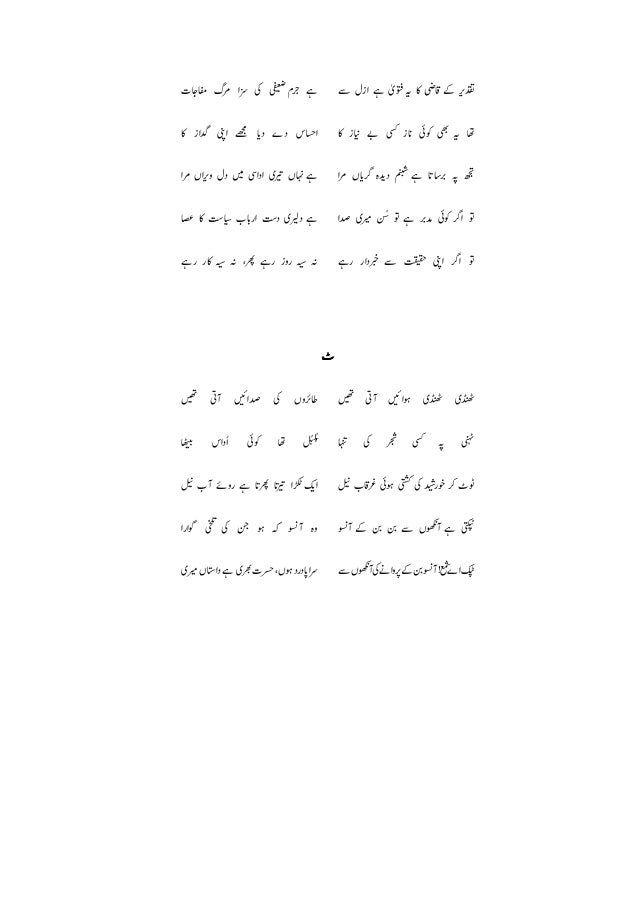 تقدیر کے قاضی کا یہ فتویٰ ہے ازل سے ہے جرم ضعیفی کی سزا مرگ مفاجات
تھا یہ بھی کوئی ناز کسی بے نیاز کا احساس دے دیا مجھے اپنی گداز کا
تجھ پہ برساتا ہے شبنم دیدہ گریاں مرا ہے نہاں تیری اداسی میں دل ویراں مرا
تو اگر کوئی مدبر ہے تو سُن میری صدا ہے دلیری دست ارباب سیاست کا عصا
تو اگر اپنی حقیقت سے خبردار رہے نہ سیہ روز رہے پھر، نہ سیہ کار رہے
ٹ
ٹھنڈی ٹھنڈی ہوائیں آتی تھیں طائروں کی صدائیں آتی تھیں
ٹہنی پہ کسی شجر کی تنہا بلبل تھا کوئی اُداس بیٹھا
ٹوٹ کر خورشید کی کشتی ہوئی غرقاب نیل ایک ٹکڑا تیرتا پھرتا ہے روئے آب نیل
ٹپکتی ہے آنکھوں سے بن بن کے آنسو وہ آنسو کہ ہو جن کی تلخی گوارا
ٹپک اے شمع! آنسو بن کے پروانے کی آنکھوں سے سراپا درد ہوں، حسرت بھری ہے داستاں میری